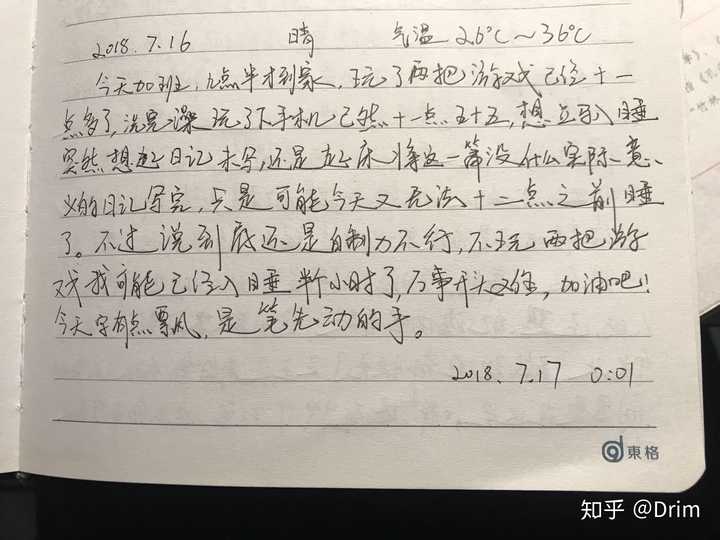 2018.7.16 晴 气温 26℃~36℃
今天加班,九点半才到家,玩了两把游戏已经十一
点多了,洗完澡玩了下手机已然十一点五十五,想立马入睡
突然想起日记未写,还是起床将这一篇没什么实际意
义的日记写完,只是可能今天又无法十二点之前睡
了。不过说到底还是自制力不行,不玩两把游
戏我可能已经入睡半个小时了,万事开头又难,加油吧!
今天字有点飘,是笔先动的手。
2018.7.17 0:01
東格
知乎 @Drim